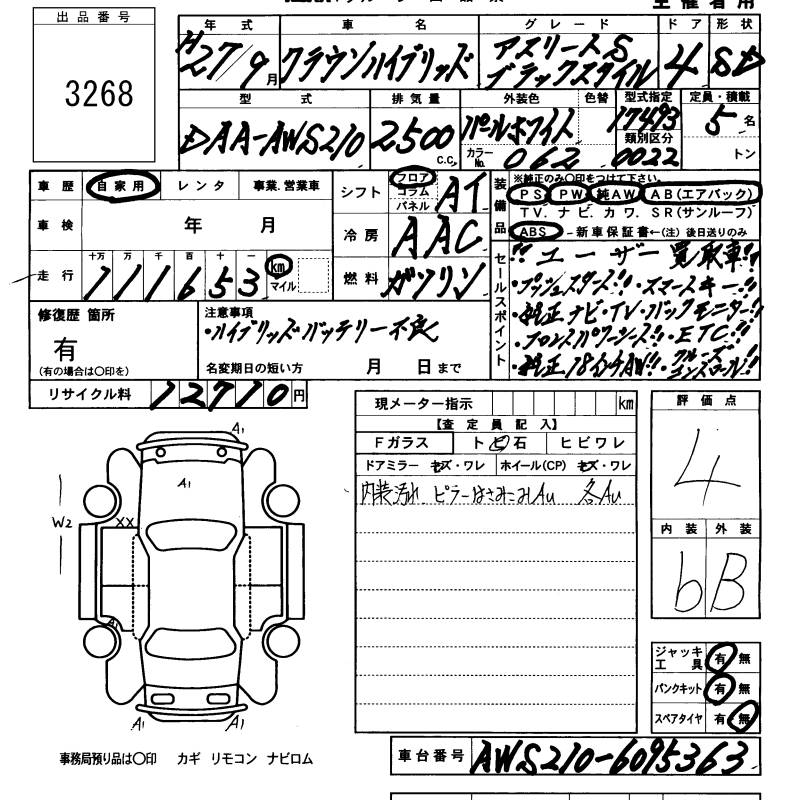 主催者用
出品番号
3268
年式 車名 グレード ドア 形状
H27/9月 クラウンハイブリッド アスリートS ブラックスタイル 4 SD
型式 排気量 外装色 色替 型式指定 定員・積載
DAA-AWS210 2500 C.C. パールホワイト 17493 5名
カラーNo. 062 類別区分 0022 トン
車歴 自家用 レンタ 事業.営業車
車検 年 月
走行 十万 万 千 百 十 一
111653 km マイル
シフト フロア コラム パネル AT
冷房 AAC
燃料 ガソリン
装備品 ※純正のみ○印をつけて下さい。
PS PW 純AW AB(エアバック)
TV. ナビ. カワ. SR(サンルーフ)
ABS -新車保証書←(注)後日送りのみ
セールスポイント
!! ユーザー買取車!!
・プッシュスタート!! ・スマートキー!!
・純正ナビ・TV・バックモニター!!
・フロントパワーシート!! ・ETC!!
・純正18インチAW!! ・クルーズコントロール!!
修復歴 箇所
有
(有の場合は○印を)
注意事項
・ハイブリッドバッテリー不良
名変期日の短い方 月 日まで
リサイクル料 12710円
現メーター指示 km
【査定員記入】
Fガラス トビ石 ヒビワレ
ドアミラー キズ・ワレ ホイール(CP) キズ・ワレ
内装汚れ ピラーはさみこみAu 各Au
評価点
4
内装 外装
b B
ジャッキ工具 有 無
パンクキット 有 無
スペアタイヤ 有・無
A1
A1
W2
XX
A1
A1 A1
事務局預り品は○印 カギ リモコン ナビロム
車台番号 AWS210-6095363